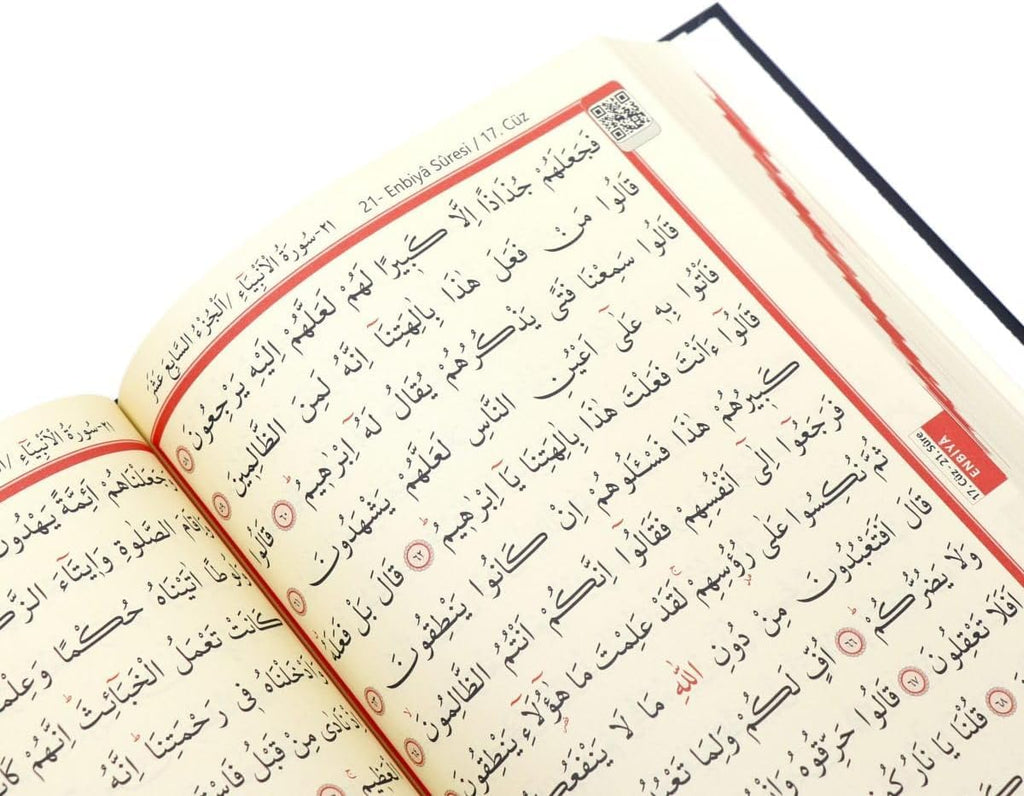 ٢١-سُورَةُ الْاَنْبِيَٓاءِ /اَلْجُزْءُ السَّابِعَ عَشَرَ 21- Enbiyâ Sûresi / 17. Cüz
فَجَعَلَهُمْ جُذَاذًا اِلَّا كَب۪يرًا لَهُمْ لَعَلَّهُمْ اِلَيْهِ يَرْجِعُونَ ٥٨
قَالُوا مَنْ فَعَلَ هٰذَا بِاٰلِهَتِنَٓا اِنَّهُ لَمِنَ الظَّالِم۪ينَ ٥٩
قَالُوا سَمِعْنَا فَتًى يَذْكُرُهُمْ يُقَالُ لَهُٓ اِبْرٰه۪يمُۜ ٦٠ قَالُوا
فَأْتُوا بِه۪ عَلٰٓى اَعْيُنِ النَّاسِ لَعَلَّهُمْ يَشْهَدُونَ ٦١
قَالُٓوا ءَاَنْتَ فَعَلْتَ هٰذَا بِاٰلِهَتِنَا يَٓا اِبْرٰه۪يمُۜ ٦٢ قَالَ بَلْ فَعَلَهُ
كَب۪يرُهُمْ هٰذَا فَسْـَٔلُوهُمْ اِنْ كَانُوا يَنْطِقُونَ ٦٣
فَرَجَعُٓوا اِلٰٓى اَنْفُسِهِمْ فَقَالُٓوا اِنَّكُمْ اَنْتُمُ الظَّالِمُونَ ٦٤
ثُمَّ نُكِسُوا عَلٰى رُؤُ۫سِهِمْۚ لَقَدْ عَلِمْتَ مَا هٰٓؤُ۬لَٓاءِ يَنْطِقُونَ
قَالَ اَفَتَعْبُدُونَ مِنْ دُونِ اللّٰهِ مَا لَا يَنْفَعُكُمْ
وَلَا يَضُرُّكُمْۜ ٦٦ اُفٍّ لَكُمْ وَلِمَا تَعْبُدُونَ
اَفَلَا تَعْقِلُونَ ٦٧ قَالُوا حَرِّقُوهُ وَانْصُرُٓوا
٦٨ قُلْنَا يَا نَارُ كُون۪ي
17. Cüz - 21. Sûre
ENBİYÂ
٢١-سُورَةُ الْاَنْبِيَٓاءِ
وَجَعَلْنَاهُمْ اَئِمَّةً يَهْدُونَ
وَاِقَامَ الصَّلٰوةِ وَا۪يتَٓاءَ
وَلُوطًا اٰتَيْنَاهُ حُكْمًا وَعِلْمًا
كَانَتْ تَعْمَلُ الْخَبَٓائِثَۜ اِنَّهُمْ
وَاَدْخَلْنَاهُ ف۪ي رَحْمَتِنَاۜ اِنَّهُ
نَادٰى مِنْ قَبْلُ